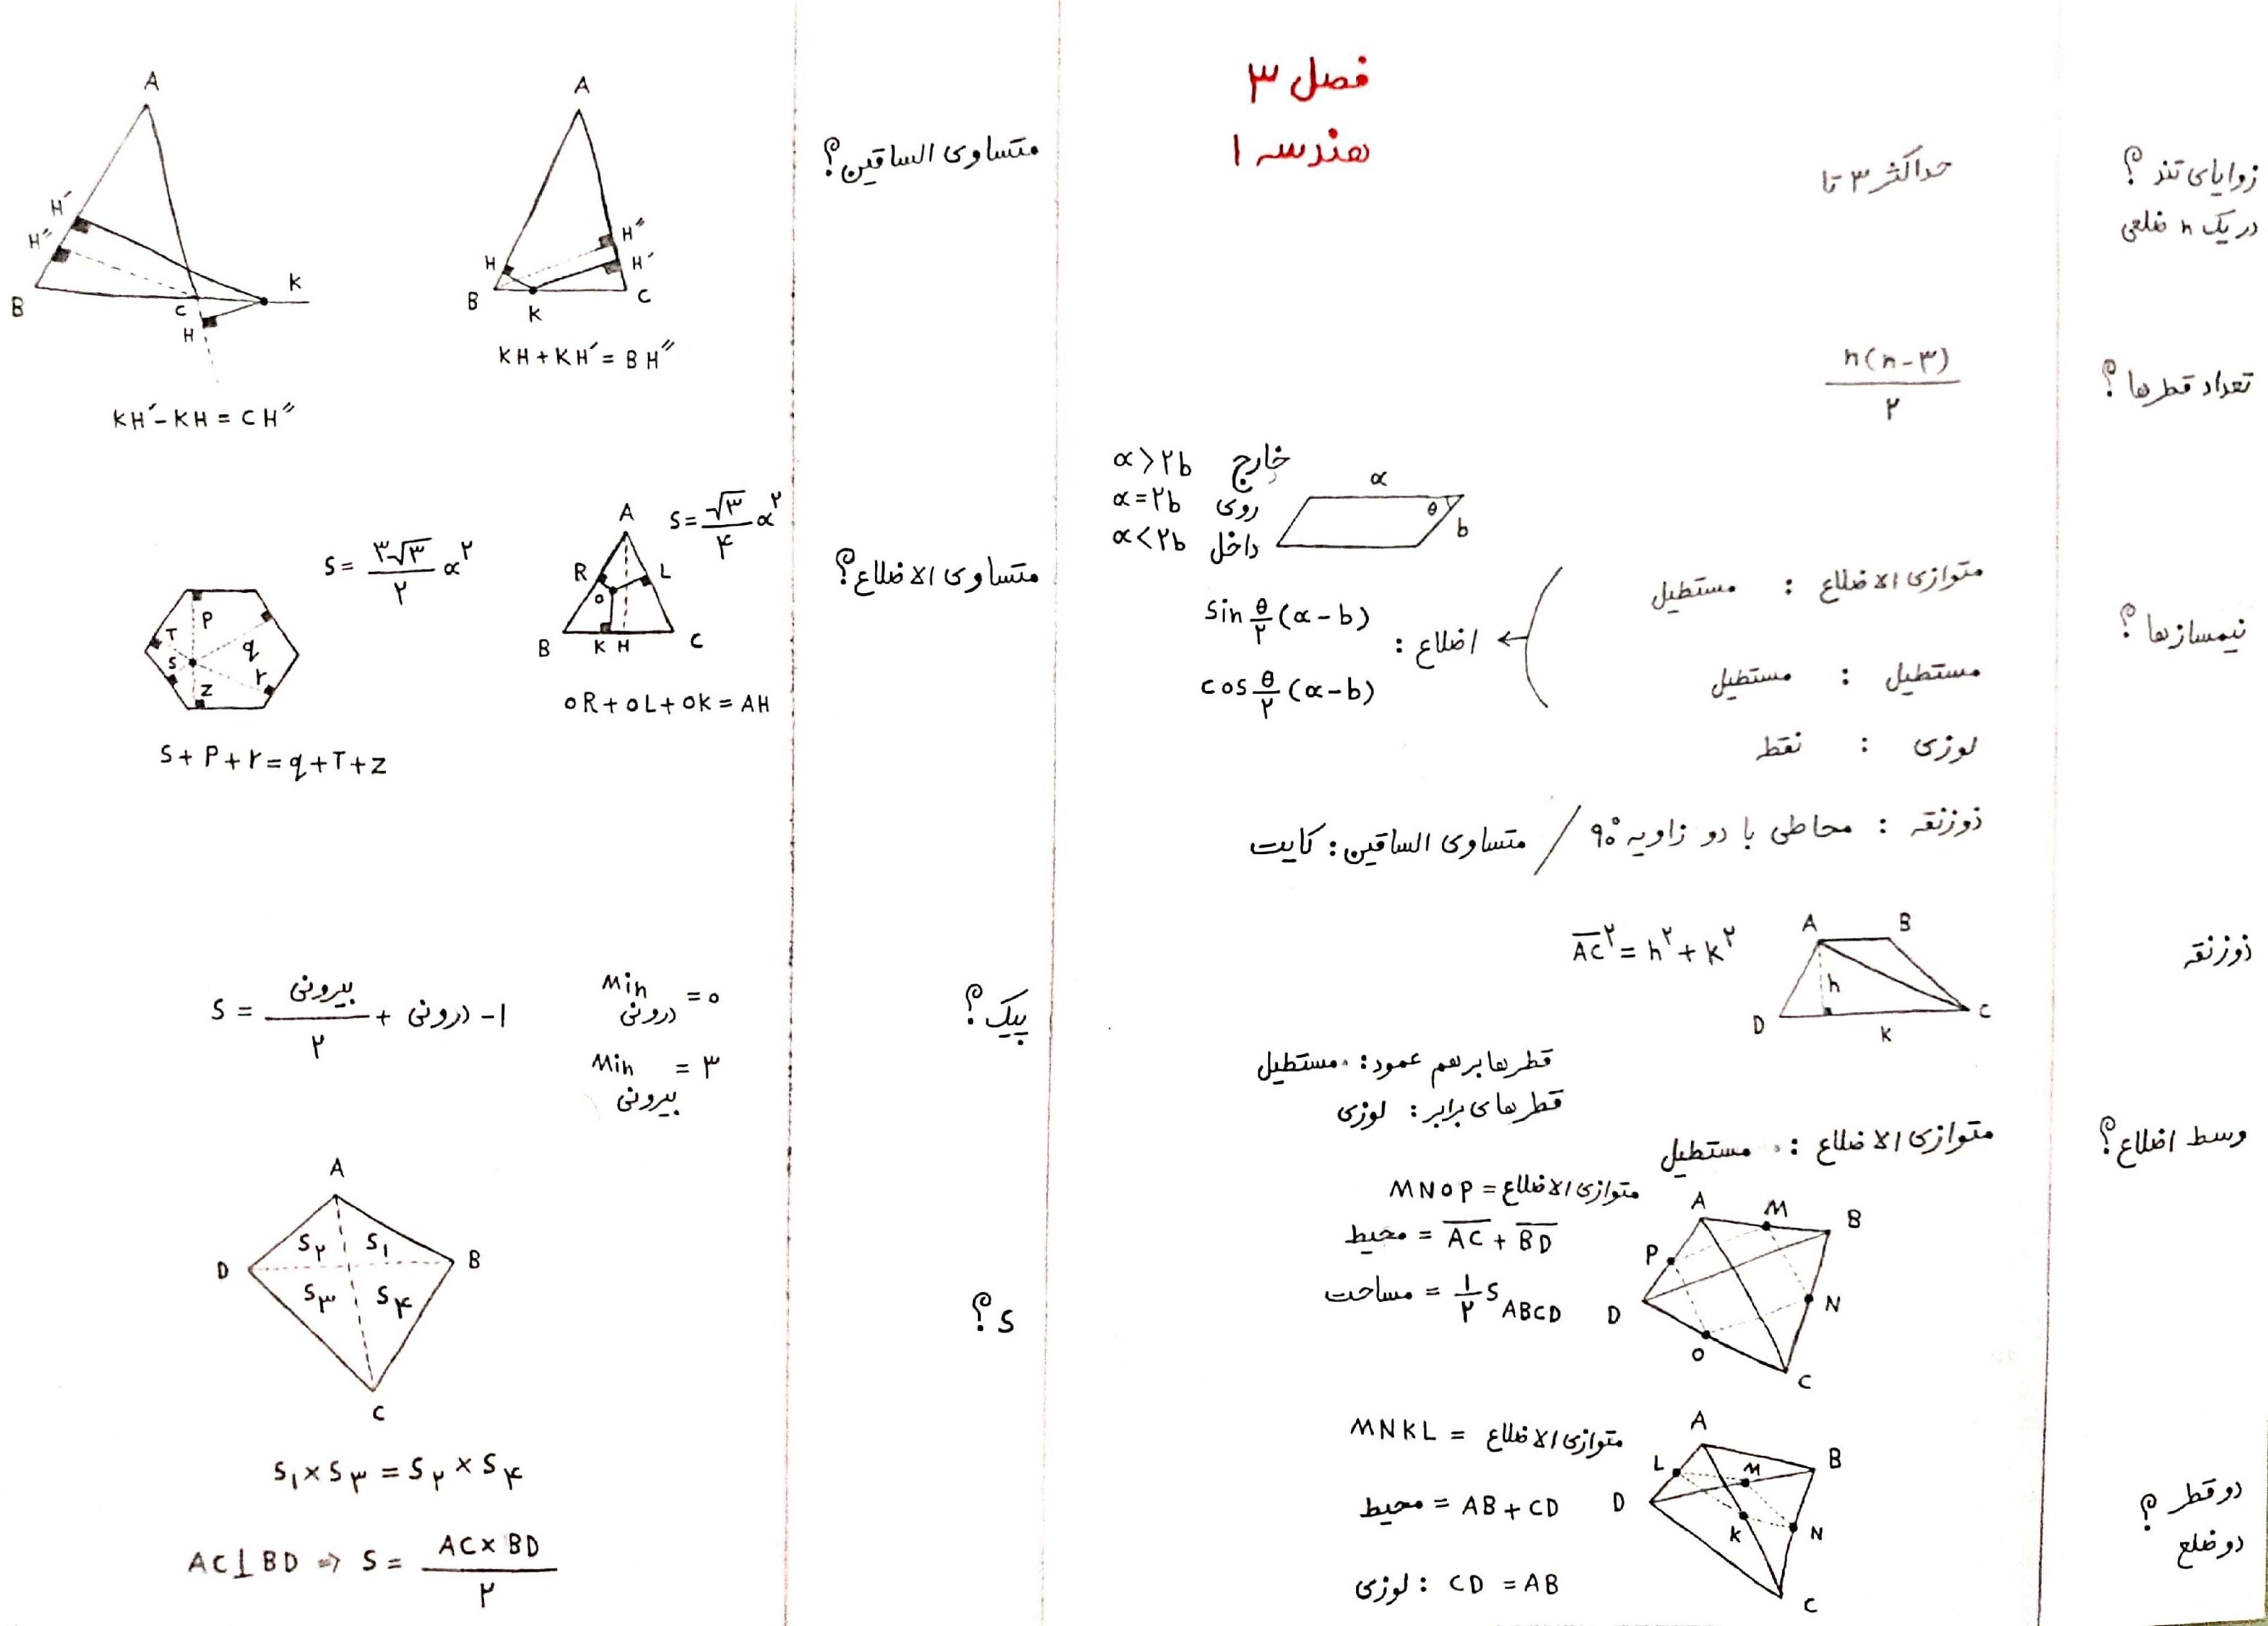 فصل ۳
هندسه ۱
زوایای تند ؟
در یک n ضلعی
حداکثر ۳ تا
تعداد قطرها ؟
n(n-۳)
۲
نیمسازها ؟
α
θ
b
α>۲b خارج
α=۲b روی
α<۲b داخل
متوازی الاضلاع : مستطیل
مستطیل : مستطیل
اضلاع :
sin θ/۲ (α-b)
cos θ/۲ (α-b)
لوزی : نقطه
ذوزنقه : محاطی با دو زاویه ۹۰° / متساوی الساقین : کایت
ذوزنقه
A B
h
D K C
AC۲ = h۲ + K۲
وسط اضلاع ؟
قطرها بر هم عمود : مستطیل
قطرهای برابر : لوزی
متوازی الاضلاع : مستطیل
MNOP = متوازی الاضلاع
محیط = AC + BD
مساحت = ۱/۲ S ABCD
A M B
P
D N
O C
دو قطر ؟
دو ضلع
MNKL = متوازی الاضلاع
محیط = AB + CD
لوزی : CD = AB
A B
L M
D K N
C
متساوی الساقین ؟
A
H H″
H′
B K C
KH + KH′ = BH″
A
H′
H″
B C K
H
KH′ - KH = CH″
متساوی الاضلاع ؟
A
S = √۳/۴ α۲
R L
O
B K H C
OR + OL + OK = AH
S = ۳√۳/۲ α۲
P
T q
S r
Z
S + P + r = q + T + Z
پیک ؟
Min درونی = ۰
Min بیرونی = ۳
S = بیرونی/۲ + درونی - ۱
S ؟
A
S۲ S۱
D B
S۳ S۴
C
S۱ × S۳ = S۲ × S۴
AC⊥BD ⇒ S = AC × BD
۲